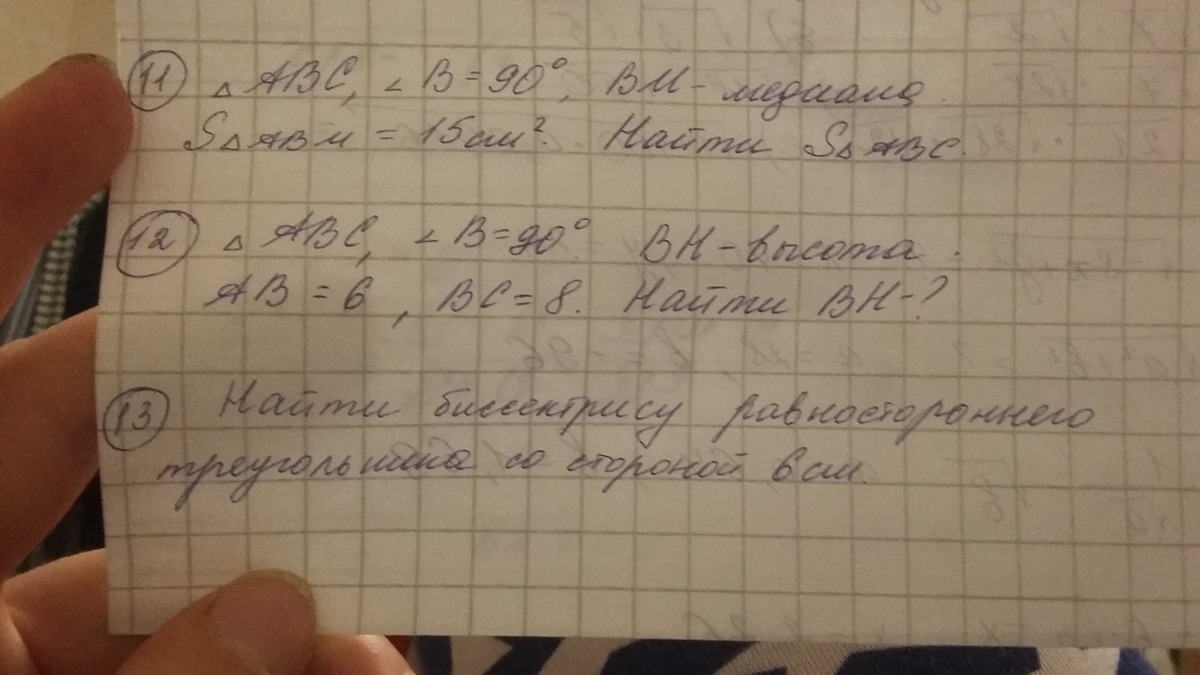 11 △ ABC, ∠ B = 90°, BM - медиана.
S△ ABM = 15 см². Найти S△ ABC.
12 △ ABC, ∠ B = 90°. BH - высота.
AB = 6, BC = 8. Найти BH - ?
13 Найти биссектрису равностороннего
треугольника со стороной 6 см.